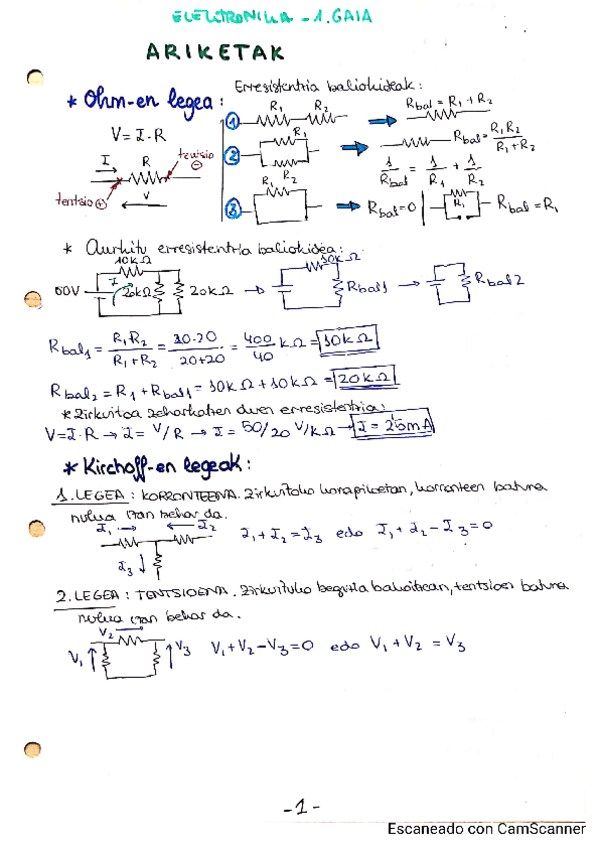 ELEKTRONIKA - 1. GAIA
ARIKETAK
* Ohm-en legea:
Erresistentzia baliokideak:
V = I·R
I R tentsio ⊖
tentsio ⊕ V
① R1 R2 → Rbal = R1 + R2
② R1 → Rbal = R1R2 / R1+R2
1/Rbal = 1/R1 + 1/R2
③ R1 R2 → Rbal = 0 | R1 Rbal = R1
* Aurkitu erresistentzia baliokidea:
10kΩ 10kΩ
50V I 20kΩ 20kΩ → Rbal1 → Rbal2
Rbal1 = R1R2 / R1+R2 = 20·20 / 20+20 = 400/40 kΩ = 10kΩ
Rbal2 = R1 + Rbal1 = 10kΩ + 10kΩ = 20kΩ
* Zirkuitoa zeharkatzen duen erresistentzia:
V=I·R → I = V/R → I = 50/20 V/kΩ → I = 2'5mA
* Kirchoff-en legeak:
1. LEGEA: KORRONTEENA. Zirkuituko korapiloetan, korronteen batura
nulua izan behar da.
I1 → ← I2
I3 ↓ I1 + I2 = I3 edo I1 + I2 - I3 = 0
2. LEGEA: TENTSIOENA. Zirkuituko begizta bakoitzean, tentsioen batura
nulua izan behar da.
V2
V1 V3 V1 + V2 - V3 = 0 edo V1 + V2 = V3
-1-
Escaneado con CamScanner